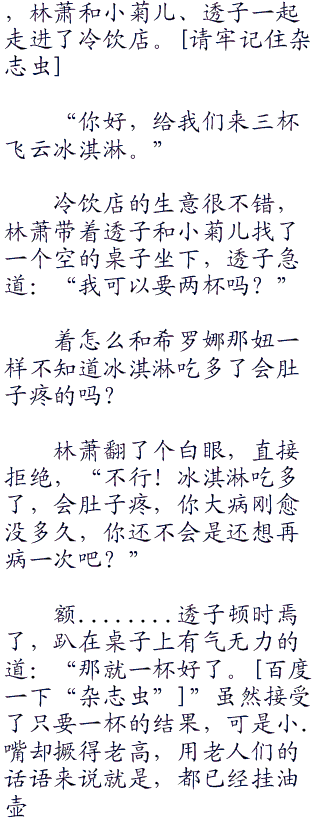 ，林萧和小菊儿、透子一起
走进了冷饮店。[请牢记住杂
志虫]
“你好，给我们来三杯
飞云冰淇淋。”
冷饮店的生意很不错，
林萧带着透子和小菊儿找了
一个空的桌子坐下，透子急
道：“我可以要两杯吗？”
着怎么和希罗娜那妞一
样不知道冰淇淋吃多了会肚
子疼的吗？
林萧翻了个白眼，直接
拒绝，“不行！冰淇淋吃多
了，会肚子疼，你大病刚愈
没多久，你还不会是还想再
病一次吧？”
额........透子顿时焉
了，趴在桌子上有气无力的
道：“那就一杯好了。[百度
一下“杂志虫”]”虽然接受
了只要一杯的结果，可是小.
嘴却撅得老高，用老人们的
话语来说就是，都已经挂油
壶